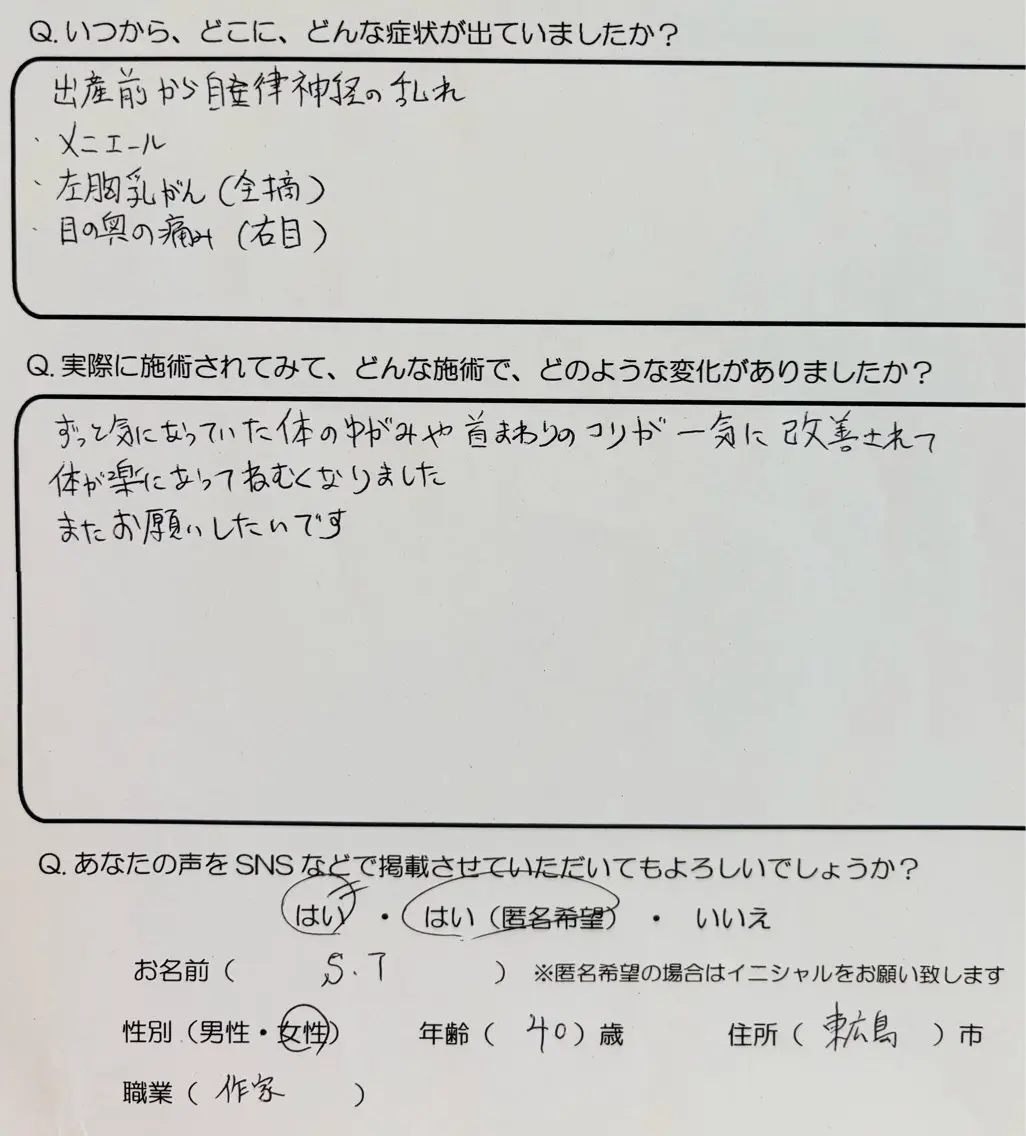 Q. いつから、どこに、どんな症状が出ていましたか？
出産前から自律神経の乱れ
・メニエール
・左胸乳がん（全摘）
・目の奥の痛み（右目）
Q. 実際に施術されてみて、どんな施術で、どのような変化がありましたか？
ずっと気になっていた体のゆがみや首まわりのコリが一気に改善されて
体が楽になってねむくなりました
またお願いしたいです
Q. あなたの声をSNSなどで掲載させていただいてもよろしいでしょうか？
はい ・ はい（匿名希望） ・ いいえ
お名前（ S.T ） ※匿名希望の場合はイニシャルをお願い致します
性別（男性・女性） 年齢（ 40 ）歳 住所（ 東広島 ）市
職業（ 作家 ）